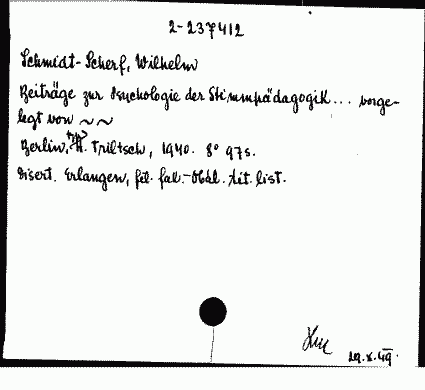 2-237412
Schmidt-Scherf, Wilhelm
Beiträge zur Psychologie der Stimmpädagogik... vorge-
legt von ~~
Berlin, typ. Triltsch, 1940. 8° 97s.
Disert. Erlangen, fil. fak.- Obál. tit. list.
29.X.49